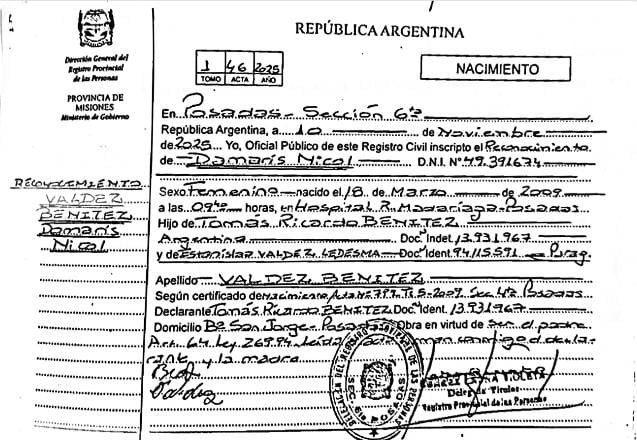 REPÚBLICA ARGENTINA
Dirección General del
Registro Provincial
de las Personas
PROVINCIA DE
MISIONES
Ministerio de Gobierno
1 46 2025
TOMO ACTA AÑO
NACIMIENTO
En Posadas - Sección 6ta
República Argentina, a 10 de Noviembre
de 2025 Yo, Oficial Público de este Registro Civil inscripto el Reconocimiento
de Damaris Nicol D.N.I. Nº 49.391.674
RECONOCIMIENTO
VALDEZ
BENITEZ
Damaris
Nicol
Sexo Femenino nacido el 18 de Marzo de 2009
a las 09 horas, en Hospital R. Madariaga - Posadas
Hijo de Tomás Ricardo BENITEZ
Argentina Doc. Indet. 13.931.967
y de Estanislaa VALDEZ LEDESMA Doc. Ident. 94.115.591 Parag.
Apellido VALDEZ BENITEZ
Según certificado de Nacimiento Acta Nº 799 Tº 5-2009 Sec 4ta Posadas
Declarante Tomás Ricardo BENITEZ Doc. Ident. 13.931.967
Domicilio Bº San Jorge - Posadas Obra en virtud de ser el padre
Art. 64. Ley 26.994 Leída conmigo el decla-
rante y la madre
Valdez
DIRECCION DEL REGISTRO PROVINCIAL DE LAS PERSONAS
SEC. 6ª POSADAS
VIOLETA
Delegada Titular
Registro Provincial de las Personas